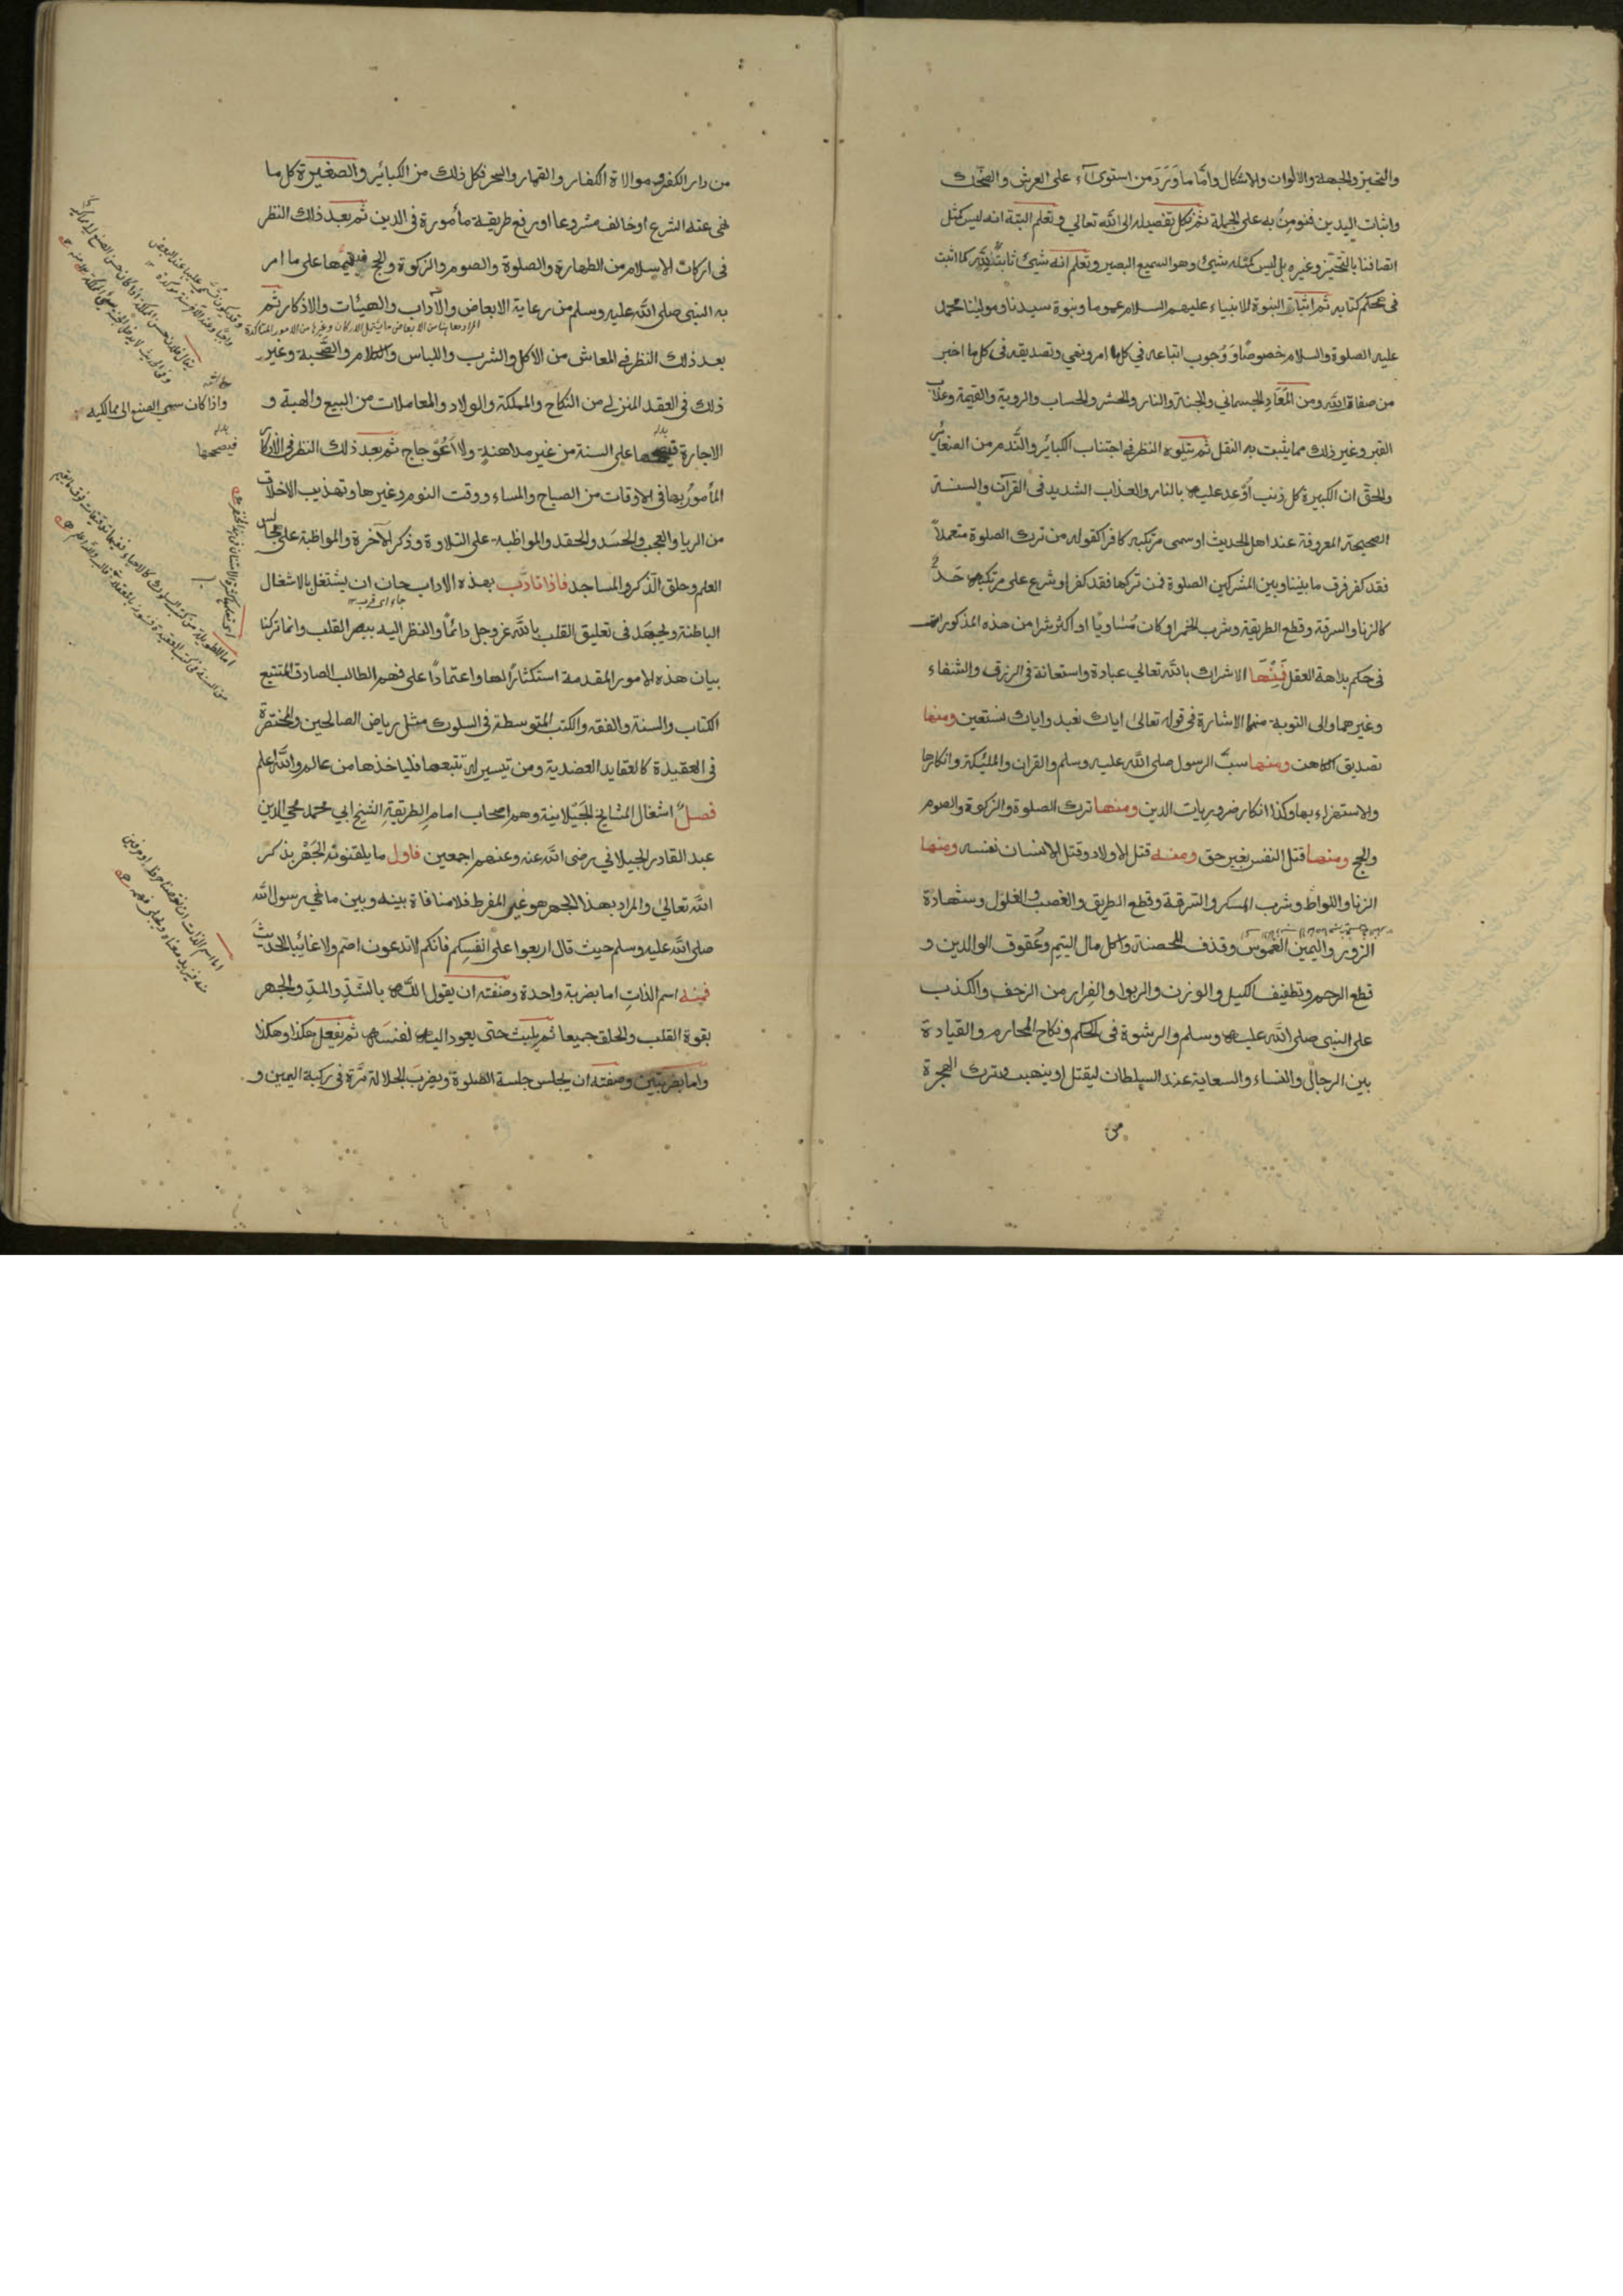 والتحيز والجهة والالوان والاشكال واما ما ورد من استوىآء على العرش والضحك
واثبات اليدين فنومن به على الجملة ثم نكل تفصيله الى الله تعالى ونعلم البتة انه ليس كمثل
اتصافنا بالتحيز وغيره بل ليس كمثله شيئ وهو السميع البصير ونعلم انه شيئ ثابت لله كما اثبت
فى محكم كتابه ثم اثبات النبوة للانبياء عليهم السلام عموما ونبوة سيدنا ومولينا محمد
عليه الصلوة والسلام خصوصًا ووجوب اتباعه في كل ما امر ونهي وتصديقه فى كل ما اخبر
من صفاة الله ومن المعاد الجسماني والجنة والنار والحشر والحساب والروية والقيمة وعذاب
القبر وغير ذلك مما يثبت به النقل ثم يتلوه النظر فى اجتناب الكبائر والندم من الصغائر
والحق ان الكبيرة كل ذنب أوعد عليه بالنار والعذاب الشديد فى القرآن والسنة
الصحيحة المعروفة عند اهل الحديث او سمى مرتكبه كافرا كقوله من ترك الصلوة متعملاً
فقد كفر فرق ما بيننا وبين المشركين الصلوة فمن تركها فقد كفر او شرع على مرتكبه حدٌّ
كالزنا والسرقة وقطع الطريقة وشرب الخمر او كان مُساويًا او اكثر شرا من هذه المذكورات
فى حكم بداهة العقل فمنها الاشراك بالله تعالى عبادة واستعانة فى الرزق والشفاء
وغيرهما والى التوبة منهما الاشارة فى قوله تعالى اياك نعبد واياك نستعين ومنها
تصديق الكاهن ومنها سبّ الرسول صلى الله عليه وسلم والقران والمليكة وانكارها
والاستهزاء بها وكذا انكار ضروريات الدين ومنها ترك الصلوة والزكوة والصوم
والحج ومنها قتل النفس بغير حق ومنه قتل الاولاد وقتل الانسان نفسه ومنها
الزنا واللواط وشرب المسكر والسرقة وقطع الطريق والغصب والغلول وشهادة
الزور واليمين الغموس وقذف المحصنة واكل مال اليتيم وعُقوق الوالدين و
قطع الرحم وتطفيف الكيل والوزن والربوا والفرار من الزحف والكذب
على النبى صلى الله عليه وسلم والرشوة فى الحكم ونكاح المحارم والقيادة
بين الرجال والنساء والسعاية عند السلطان ليقتل او ينهب وترك الهجرة
من
من دار الكفر وموالاة الكفار والقمار والسحر فكل ذلك من الكبائر والصغيرة كل ما
نهى عنه الشرع او خالف مشروعا او رفع طريقة مأمورة فى الدين ثم بعد ذلك النظر
فى اركان الاسلام من الطهارة والصلوة والصوم والزكوة والحج فيقيمها على ما امر
به النبى صلى الله عليه وسلم من رعاية الابعاض والآداب والهيئات والاذكار ثم
المراد هاهنا من الابعاض ما يشمل الاركان وغيرها من الامور المتاكدة
بعد ذلك النظر فى المعاش من الاكل والشرب واللباس والكلام والصحبة وغير
ذلك فى العقد المنزلى من النكاح والمملكة والولاد والمعاملات من البيع والهبة و
الاجارة فيصححها على السنة من غير مداهنة ولا اعوجاج ثم بعد ذلك النظر فى الاذكار
المأمور بها فى الاوقات من الصباح والمساء ووقت النوم وغيرها وتهذيب الاخلاق
من الريا والعجب والحسد والحقد والمواظبة على التلاوة وذكر الآخرة والمواظبة على مجالس
العلم وحلق الذكر والمساجد فاذا تادّب بهذه الاداب حان ان يشتغل بالاشغال
جاء اى قرب ١٢
الباطنة ويجتهد فى تعليق القلب بالله عز وجل دائمًا والنظر اليه ببصر القلب وانما تركنا
بيان هذه الامور المقدمة استكثارًا لها واعتمادًا على فهم الطالب الصادق المتتبع
الكتاب والسنة والفقه والكتب المتوسطة فى السلوك مثل رياض الصالحين والمختصرة
فى العقيدة كالعقايد العضدية ومن تيسير له تتبعها فلياخذها من عالم والله اعلم
فصل اشغال المشايخ الجيلانية وهم اصحاب امام الطريقة الشيخ ابي محمد محي الدين
عبد القادر الجيلاني رضى الله عنه وعنهم اجمعين فاول ما يلقنونه الجهر بذكر
الله تعالى والمراد بهذا الجهر هو غير المفرط فلا منافاة بينه وبين ما نهي رسول الله
صلى الله عليه وسلم حيث قال اربعوا على انفسكم فانكم لا تدعون اصم ولا غائبا الحديث
فمنه اسم الذات اما بضربة واحدة وصفته ان يقول الله بالشدّ والمدّ والجهر
بقوة القلب والحلق جميعا ثم يلبث حتى يعود اليه نفسه ثم يفعل هكذا وهكذا
واما بضربتين وصفته ان يجلس جلسة الصلوة ويضرب الجلالة مرّة فى ركبة اليمين و
واذا كان سيئ الصنع الى مماليكه
بدله
فيصححها